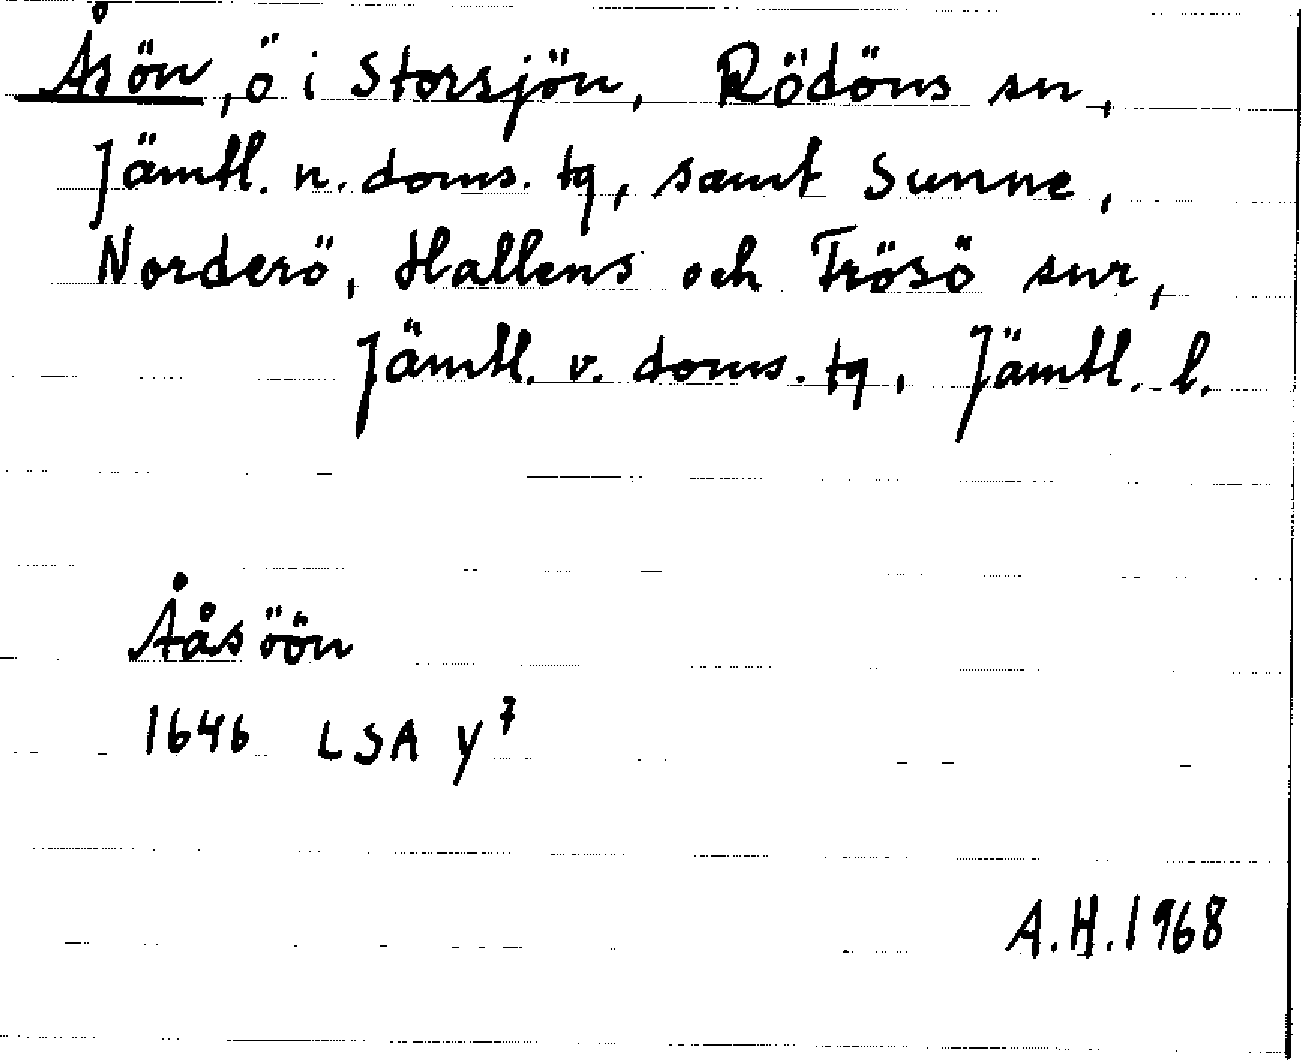 Åsön, ö i Storsjön, Rödöns sn,
Jämtl. n. doms. tg, samt Sunne,
Norderö, Hallens och Frösö snr,
Jämtl. v. doms. tg, Jämtl. l.
Ååsöön
1646 LSA y⁷
A.H. 1968